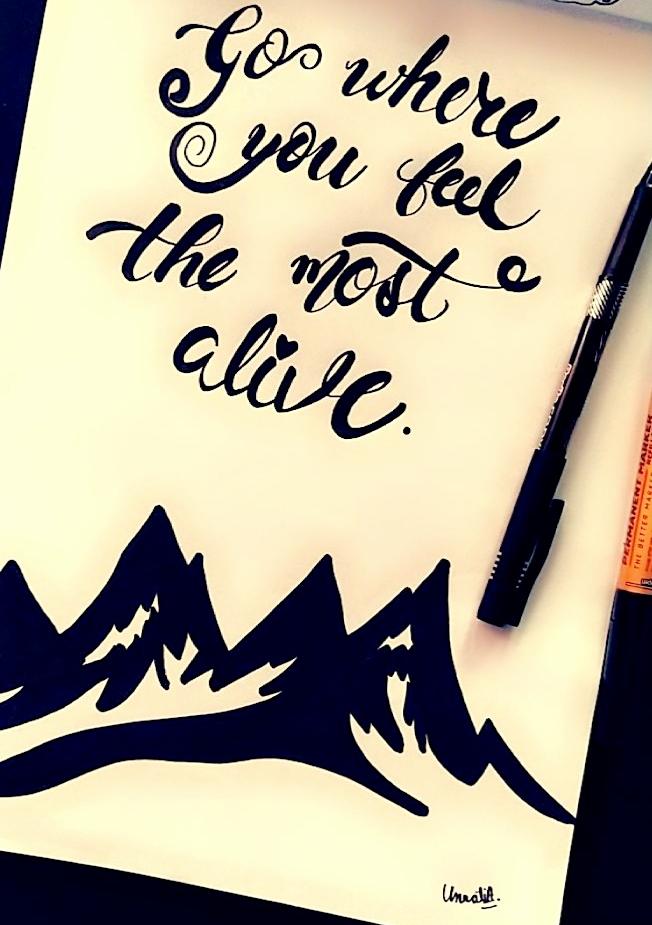 Go where
you feel
the most
alive.
PERMANENT MARKER
THE BETTER